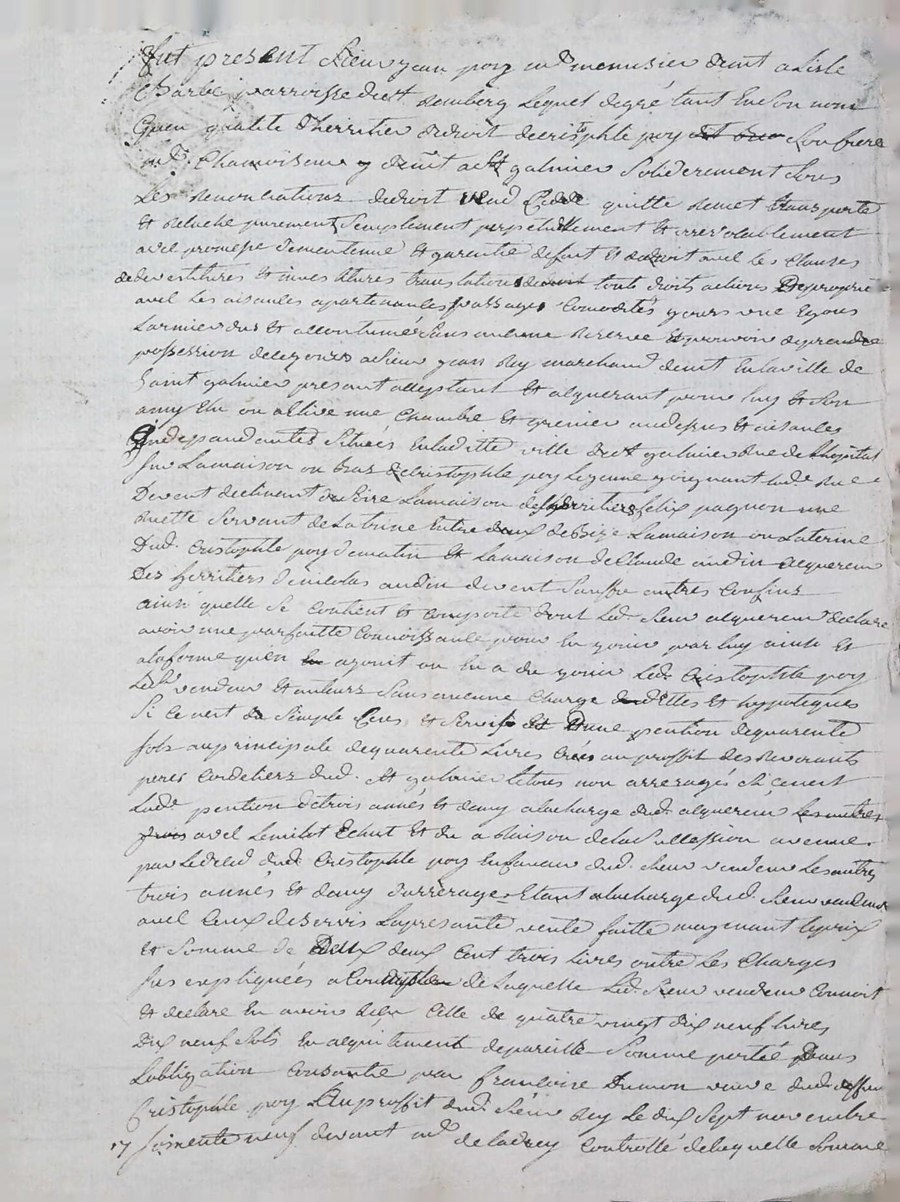 fut present sieur jean poy md menusier demt a Lisle
Barbe parroisse de st Rembert lequel de gré tant en son nom
quen qualité d'herritier de droit de cristophle poy son frere
md Chamoiseur y demt a st galmier solidairement sous
Les Renonciations de droit vend cede quitte Remet transporte
et Relache purement simplement perpetuellement et irrevocablement
avec promesse de maintenue et garantie de fait et de droit avec les clauses
de devestitures et investitures translations de tous droits actions et proprieté
avec Les aisances apartenances passages comodités jours vue Egous
Larmier dus et accoutumés sans aucune Reserve et pouvoir de prendre
possession de ce jourd a sieur jean Rey marchand demt En la ville de
Saint galmier present acceptant et acquerant pour luy et son
amy Elu ou a Elire une chambre et grenier au dessus et aisances
independantes situés En laditte ville de st galmier Rue de L'hopital
sur La maison ou bas de cristophle poy Le jeune joignant lade Rue
Devent declinant au soire La maison des herritiers felix pagnon une
Ruelle servant de Latrine Entre deux de Bize La maison ou Laterine
Dud. cristophle poy de matin et La maison de Claude audin acquereur
Des herritiers de nicolas audin de vent sauf ses autres confins
ainsi quelle se contient et comporte dont Led. sieur acquereur declare
avoir une parfaitte connoissance pour En jouir par luy ainsi et
a la forme quen a jouit ou En a du jouir Led. Cristophle poy
Led. vendeur et auteurs sans aucune charge dettes et hypoteques
si ce nest de simple Cens et servis et dune pention de quarente
sols au principale de quarente Livres créés au proffit des Reverants
peres Cordeliers dud. st galmier le tous non arreragés si ce nest
Lade pention de trois années et demy a la charge dud. acquereur
avec Le milot Echut et du a Raison de la succession avenue
par Le deced dud. Cristophle poy En faveur dud. sieur vendeur Les autres
trois années et demy d'arrerages Etant a la charge dud. sieur vendeur
avec Ceux de servis La presante vente faitte moyenant le prix
et somme de deux cent trois Livres outre Les charges
sus expliquées a compte de Laquelle Led. sieur vendeur Connoit
et declare En avoir Reçu Celle de quatre vingt dix neuf livres
Dix neuf sols En acquitement de pareille somme portée Dans
Lobligation consantie par francoise Dumon veuve dud. deffun
Cristophle poy Au proffit dud. sieur Rey Le dix sept novembre
17 soixente neuf devant md de ladrey Controllé de laquelle somme